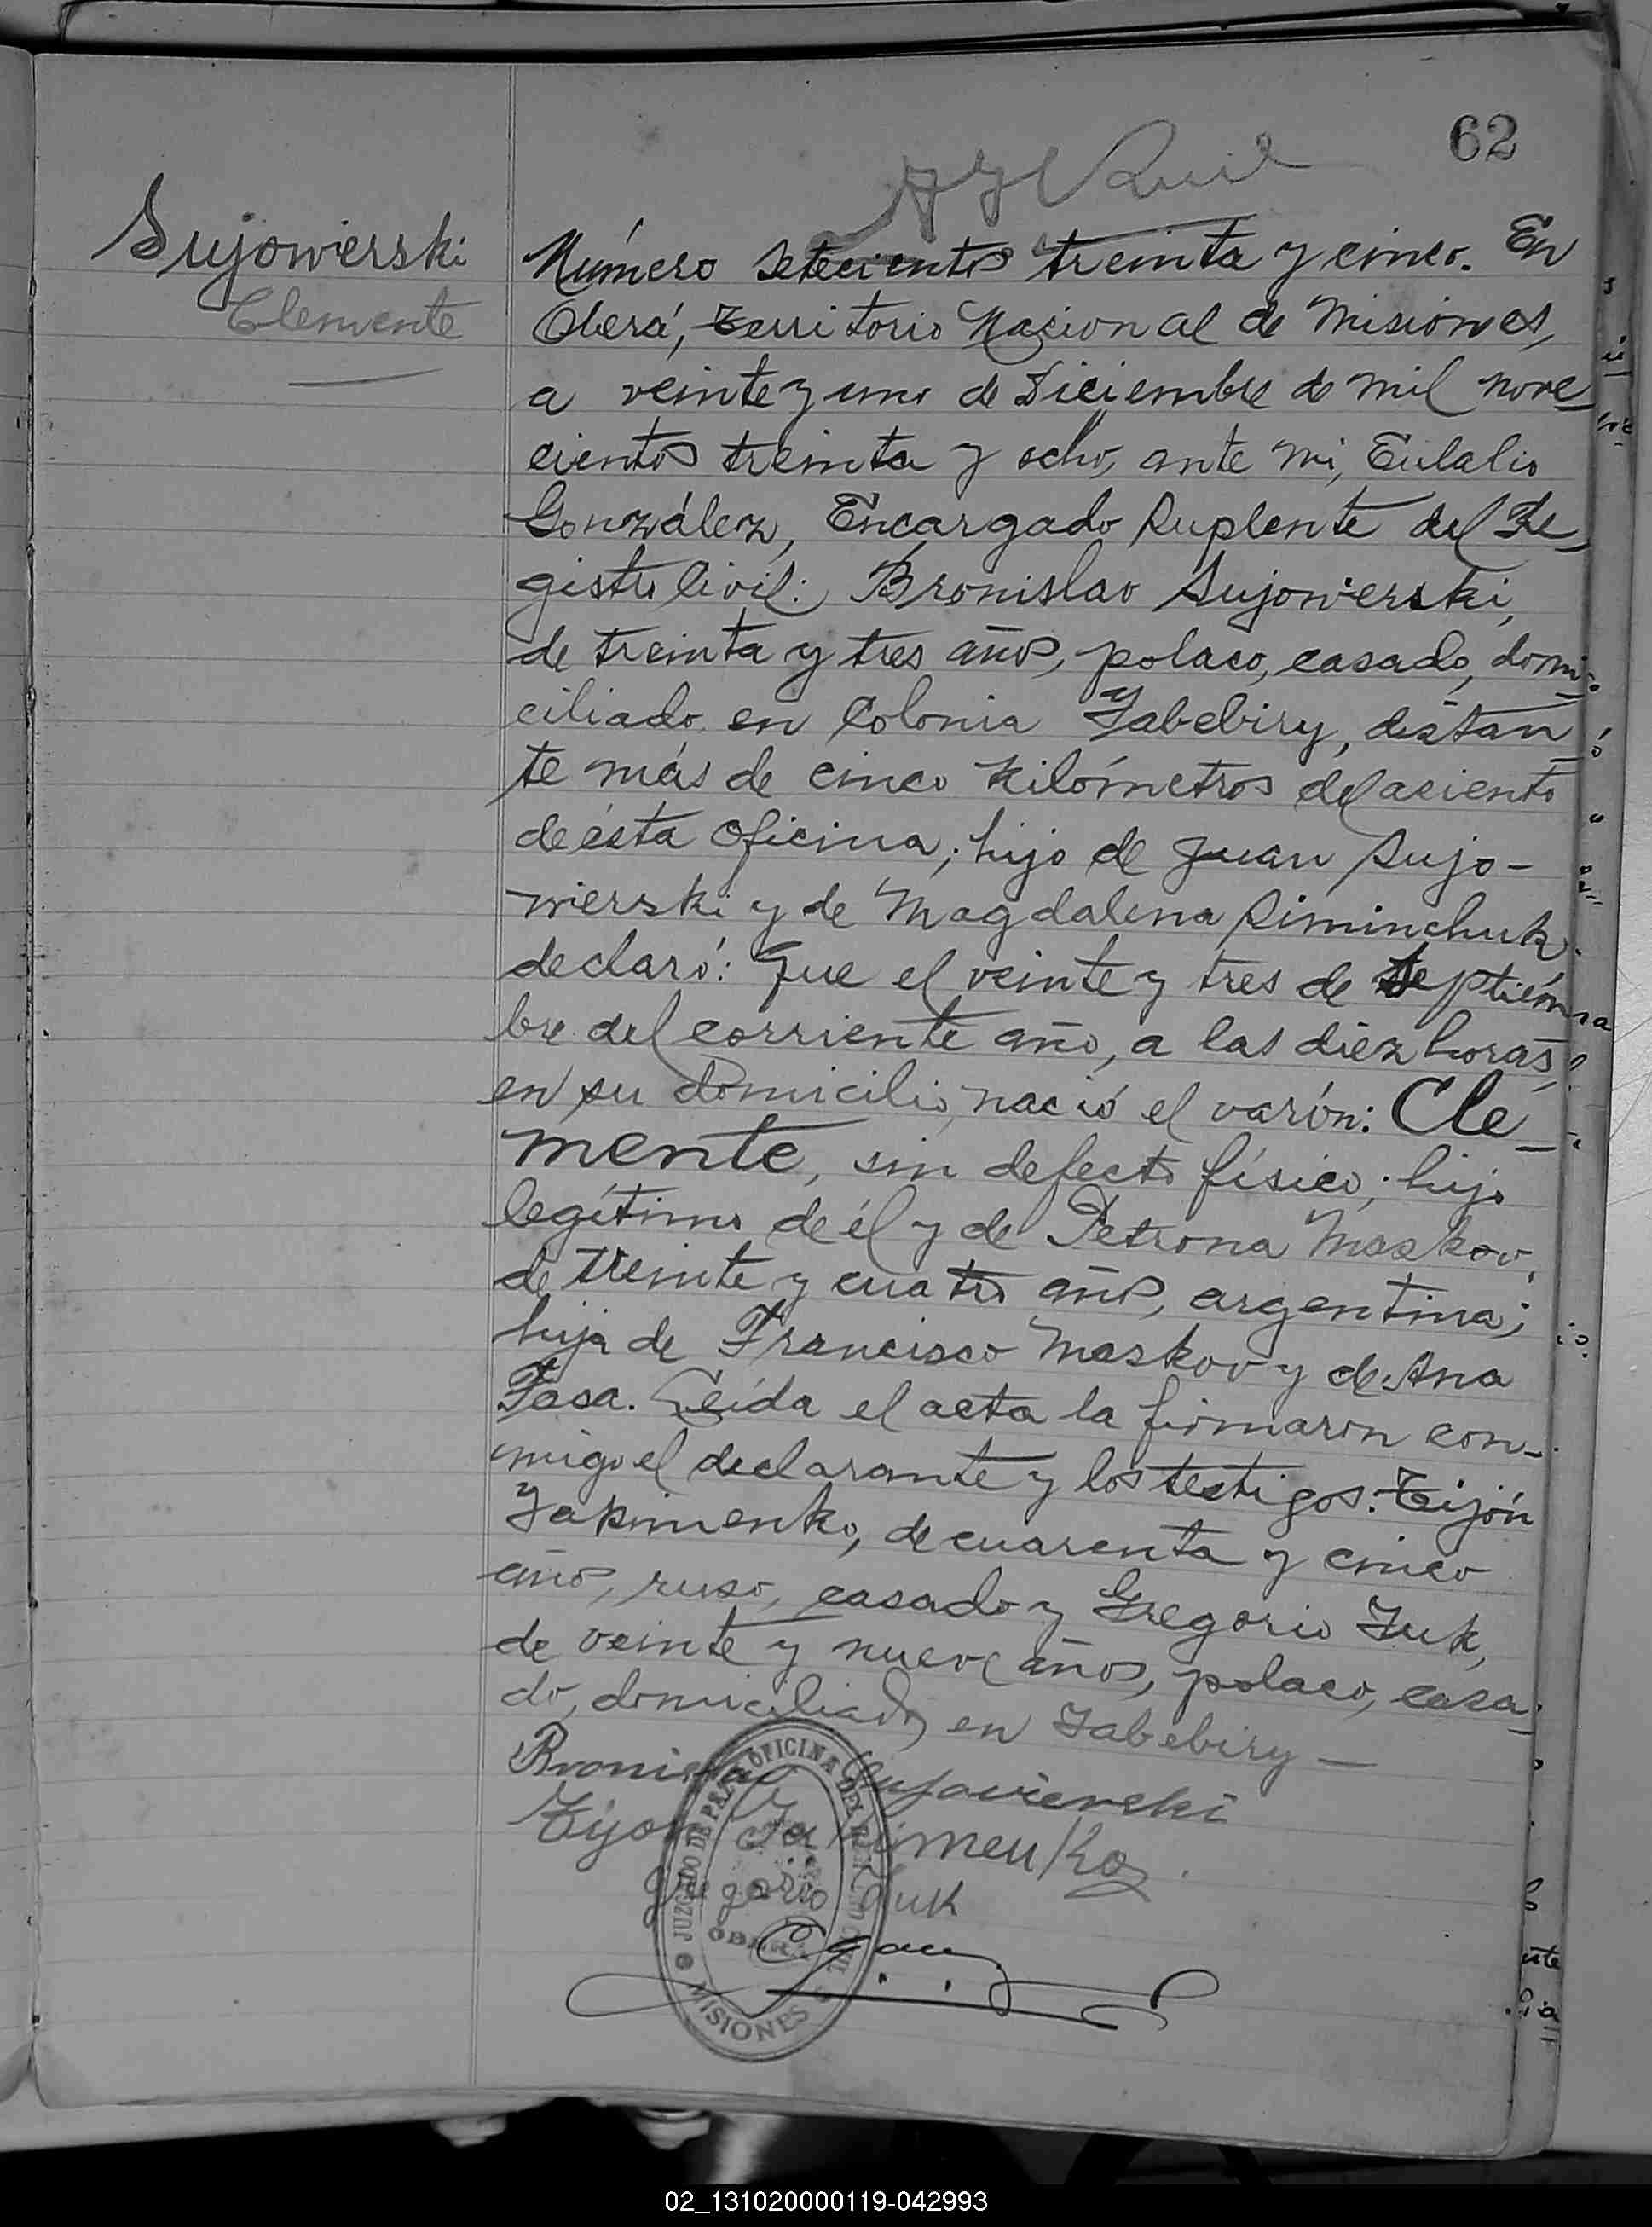 62
Sujowierski
Clemente
Número setecientos treinta y cinco. En
Oberá, Territorio Nacional de Misiones,
a veinte y uno de Diciembre de mil nove-
cientos treinta y ocho, ante mi, Eulalio
González, Encargado Suplente del Re-
gistro Civil: Bronislao Sujowierski,
de treinta y tres años, polaco, casado, domi-
ciliado en Colonia Yabebiry, distan-
te más de cinco kilómetros del asiento
de ésta oficina; hijo de Juan Sujo-
wierski y de Magdalena Siminchuk
declaró: Que el veinte y tres de Septiem-
bre del corriente año, a las diez horas,
en su domicilio, nació el varón: Cle-
mente, sin defecto físico; hijo
legítimo de él y de Petrona Maskov,
de treinte y cuatro años, argentina;
hija de Francisco Maskov y de Ana
Fasa. Leída el acta la firmaron con-
migo el declarante y los testigos: Tijón
Yakimenko, de cuarenta y cinco
años, ruso, casado y Gregorio Zuk,
de veinte y nueve años, polaco, casa-
do, domiciliados en Yabebiry —
Bronislao Sujovierski
Tijon Yakimenko
Gregorio Zuk
JUZGADO DE PAZ OFICINA DEL REGISTRO CIVIL
OBERÁ
MISIONES
02_131020000119-042993